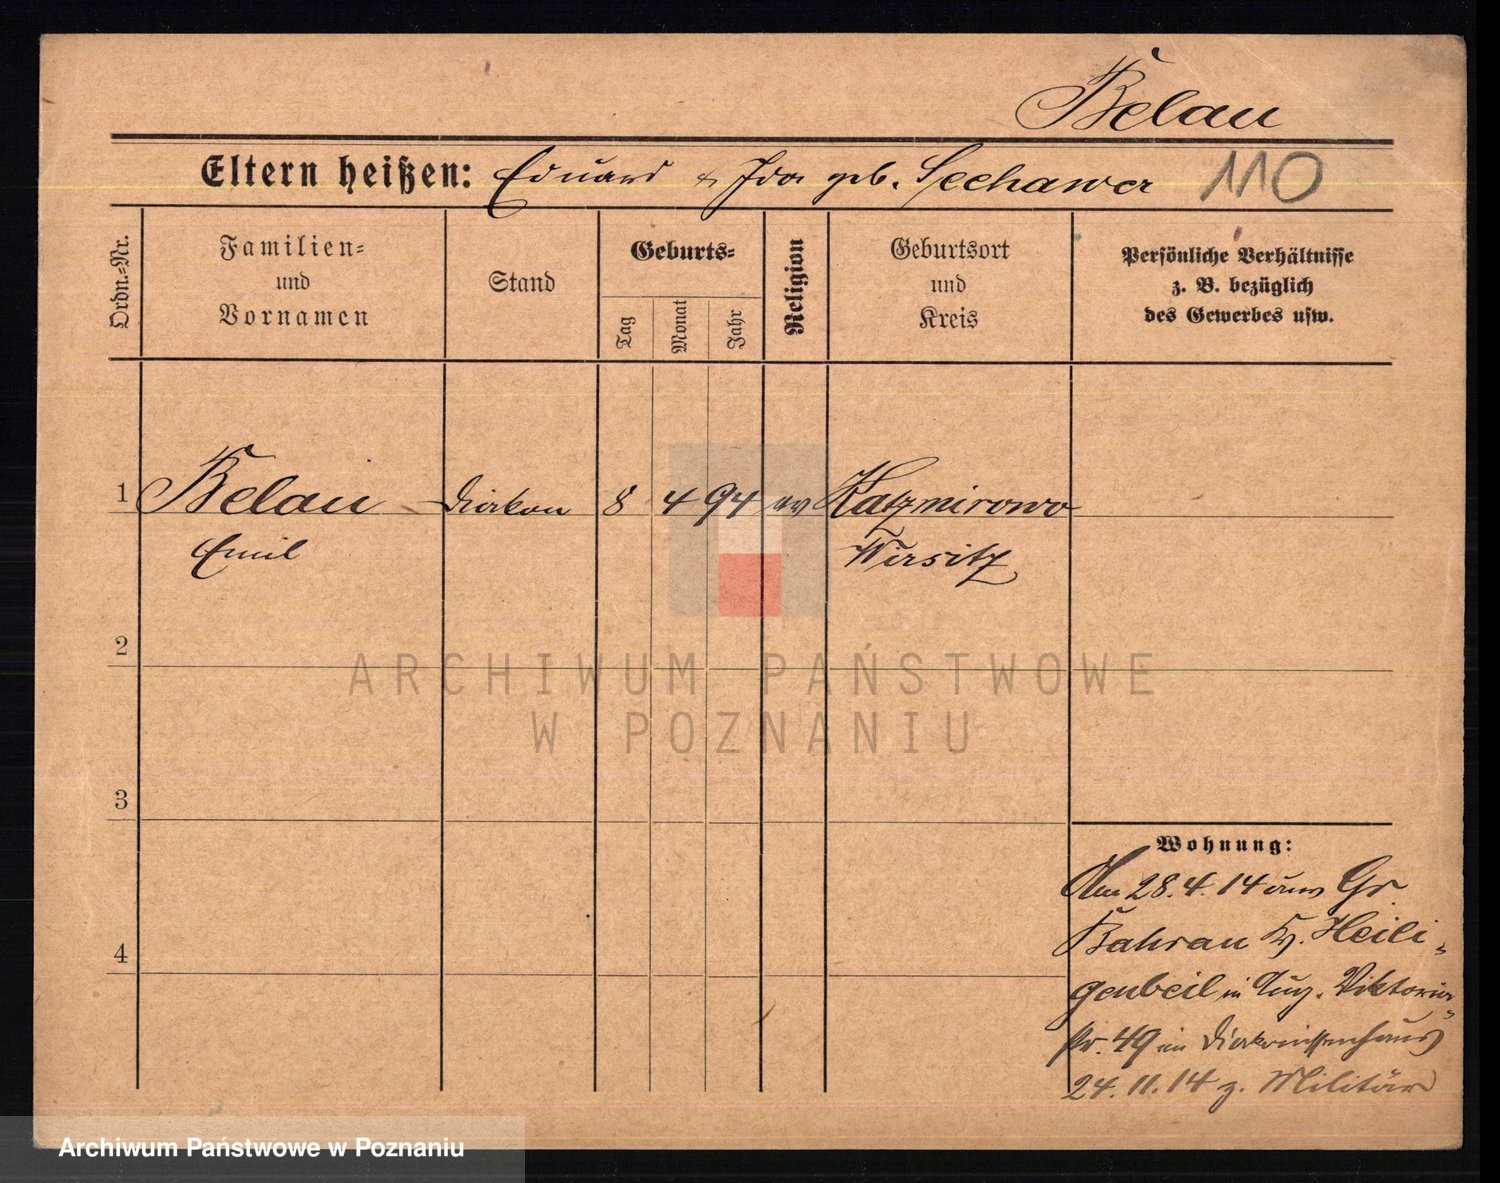 Belau
Eltern heißen: Eduard & Ida geb. Seehawer 110
Ordn.-Nr.
Familien-
und
Vornamen
Stand
Geburts-
Tag
Monat
Jahr
Religion
Geburtsort
und
Kreis
Persönliche Verhältnisse
z. B. bezüglich
des Gewerbes usw.
1 Belau Diakon 8 4 94 ev Kazmirowo
Emil Wirsitz
2
ARCHIWUM PAŃSTWOWE
W POZNANIU
3
Wohnung:
Am 28.4.14 aus Gr.
Bahrau Kr. Heili-
4
genbeil in Aug. Viktoria-
str. 49 im Diakonissenhaus
24.11.14 z. Militär
Archiwum Państwowe w Poznaniu